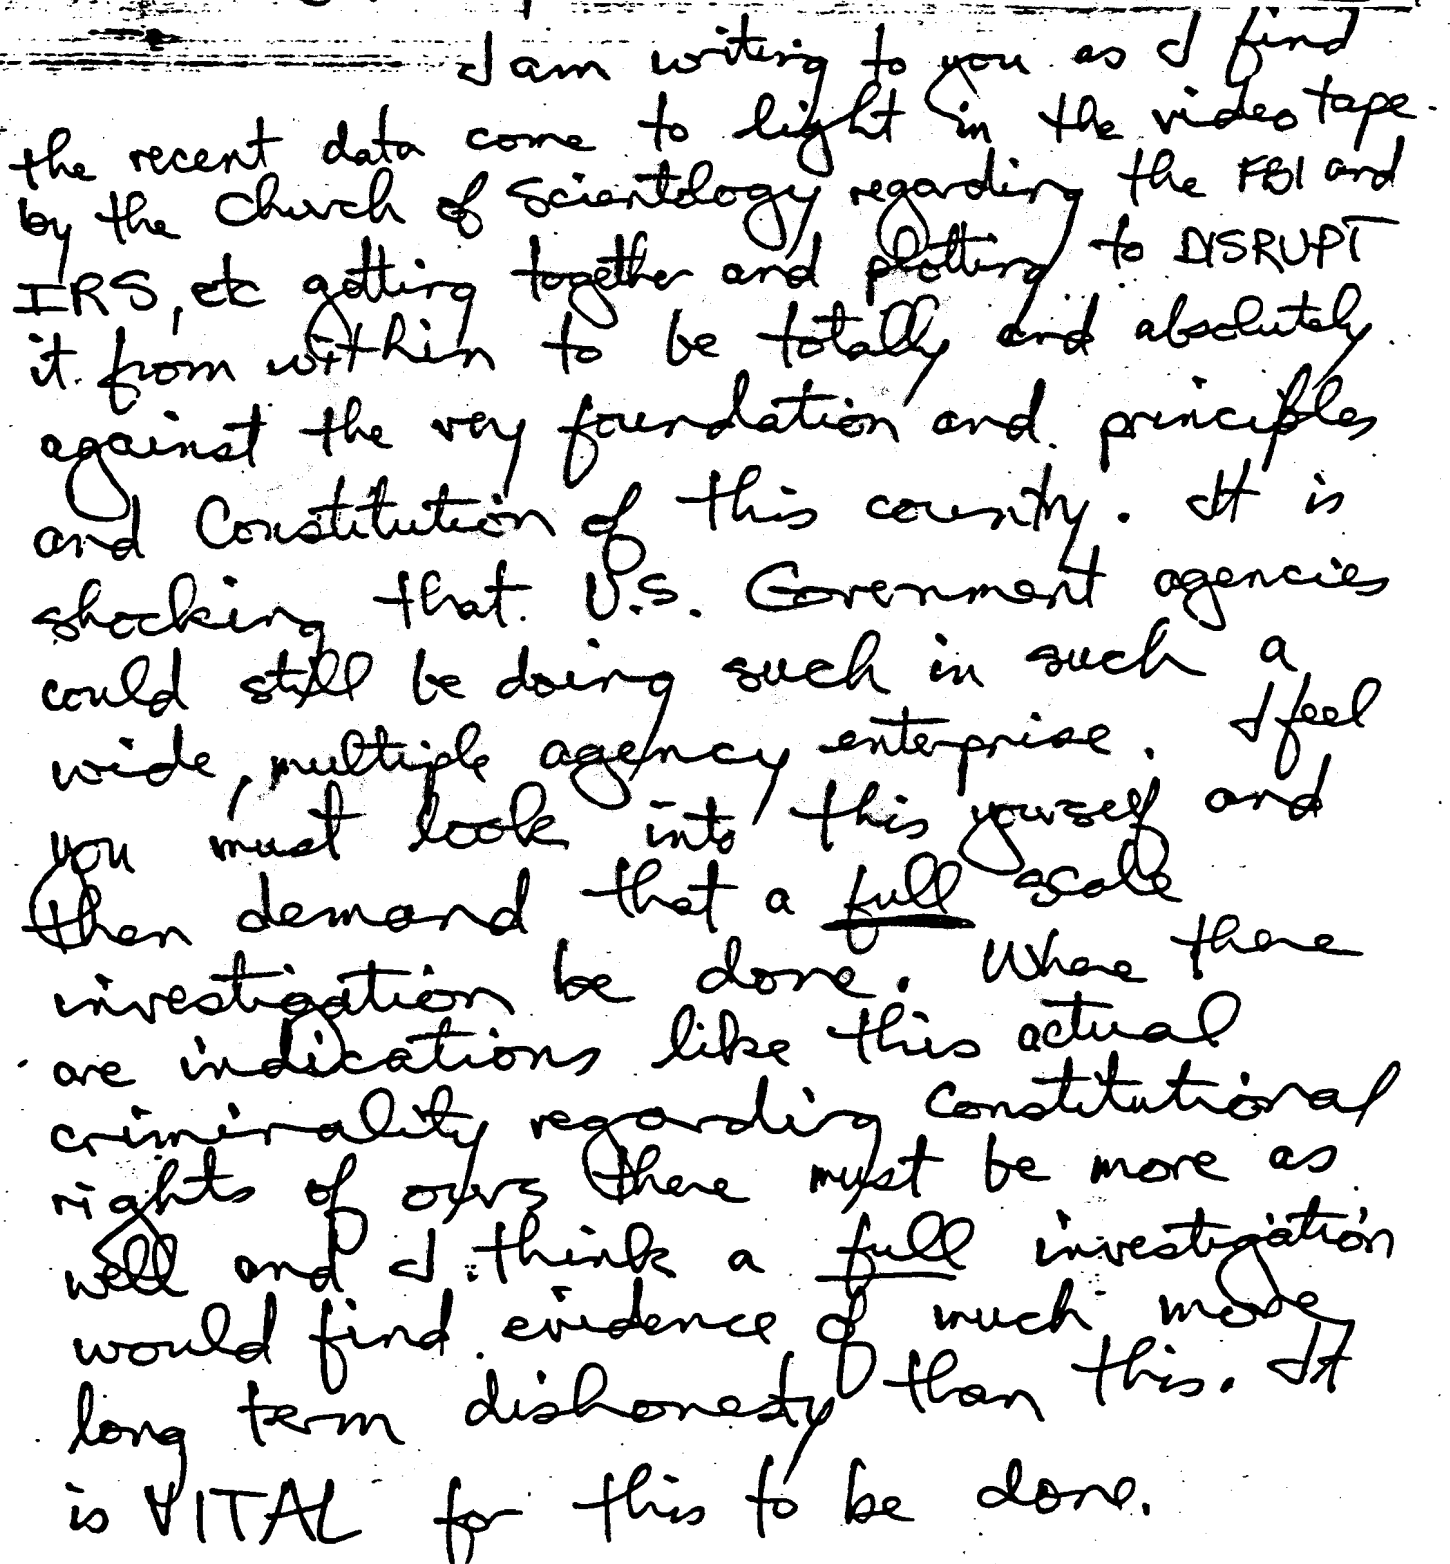 I am writing to you as I find
the recent data come to light in the video tape
by the Church of Scientology regarding the FBI and
IRS, etc getting together and plotting to DISRUPT
it from within to be totally and absolutely
against the very foundation and principles
and Constitution of this country. It is
shocking that U.S. Government agencies
could still be doing such in such a
wide, multiple agency enterprise. I feel
you must look into this yourself and
then demand that a full scale
investigation be done. Where there
are indications like this actual
criminality regarding Constitutional
rights of ours there must be more as
well and I think a full investigation
would find evidence of much more
long term dishonesty than this. It
is VITAL for this to be done.